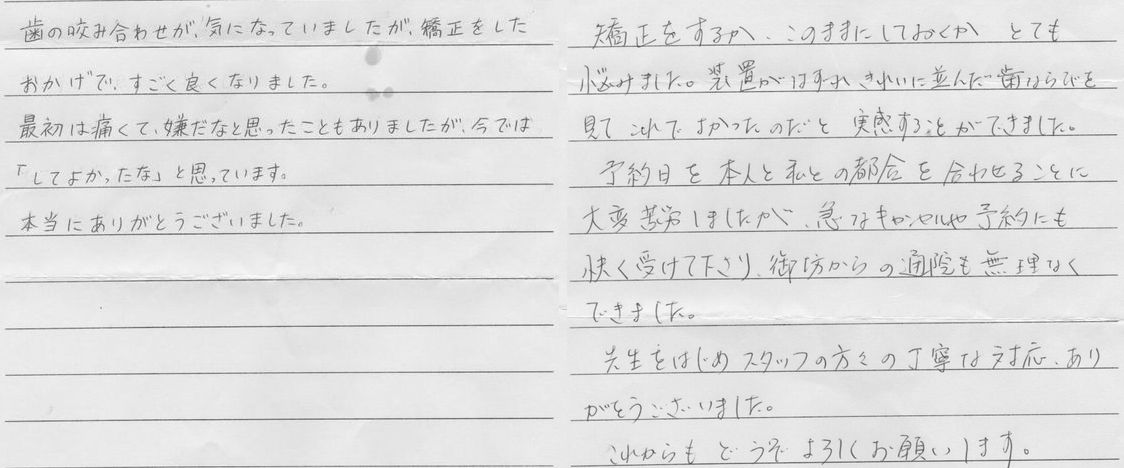 歯の咬み合わせが、気になっていましたが、矯正をした
おかげで、すごく良くなりました。
最初は痛くて、嫌だなと思ったこともありましたが、今では
「してよかったな」と思っています。
本当にありがとうございました。
矯正をするか、このままにしておくか とても
悩みました。装置がはずれ きれいに並んだ歯ならびを
見て これで よかったのだと 実感することができました。
予約日を本人と私との都合を合わせることに
大変苦労しましたが、急なキャンセルや予約にも
快く受けて下さり、御坊からの通院も無理なく
できました。
先生をはじめスタッフの方々の丁寧な対応、あり
がとうございました。
これからも どうぞ よろしくお願いします。